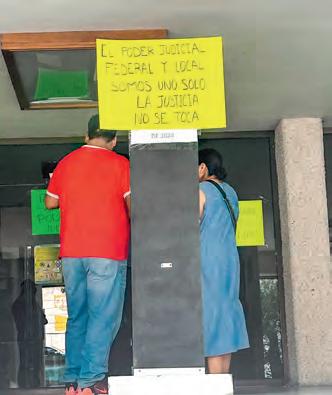 EL PODER JUDICIAL
FEDERAL Y LOCAL
SOMOS UNO SOLO
LA JUSTICIA
NO SE TOCA